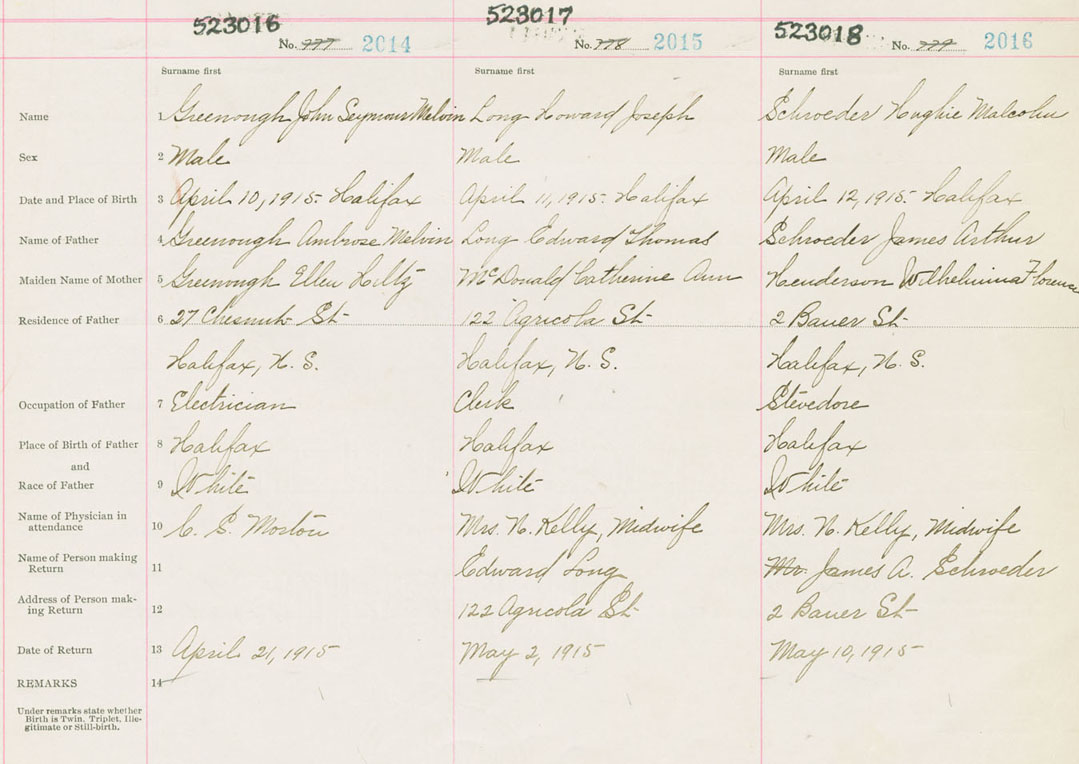 523016 523017 523018
No. 777 2014 No. 778 2015 No. 779 2016
Surname first Surname first Surname first
Name 1 Greenough John Seymour Melvin Long Howard Joseph Schroeder Hughie Malcolm
Sex 2 Male Male Male
Date and Place of Birth 3 April 10, 1915- Halifax April 11, 1915- Halifax April 12, 1915- Halifax
Name of Father 4 Greenough Ambrose Melvin Long Edward Thomas Schroeder James Arthur
Maiden Name of Mother 5 Greenough Ellen Hiltz McDonald Catherine Ann Henderson Wilhelmina Florence
Residence of Father 6 27 Chesnut St 122 Agricola St 2 Bauer St
Halifax, N. S. Halifax, N. S. Halifax, N. S.
Occupation of Father 7 Electrician Clerk Stevedore
Place of Birth of Father 8 Halifax Halifax Halifax
and
Race of Father 9 White White White
Name of Physician in
attendance 10 C. S. Morton Mrs. N. Kelly, Midwife Mrs. N. Kelly, Midwife
Name of Person making
Return 11 Edward Long Mr. James A. Schroeder
Address of Person mak-
ing Return 12 122 Agricola St 2 Bauer St
Date of Return 13 April 21, 1915 May 2, 1915 May 10, 1915
REMARKS 14
Under remarks state whether
Birth is Twin, Triplet, Ille-
gitimate or Still-birth.